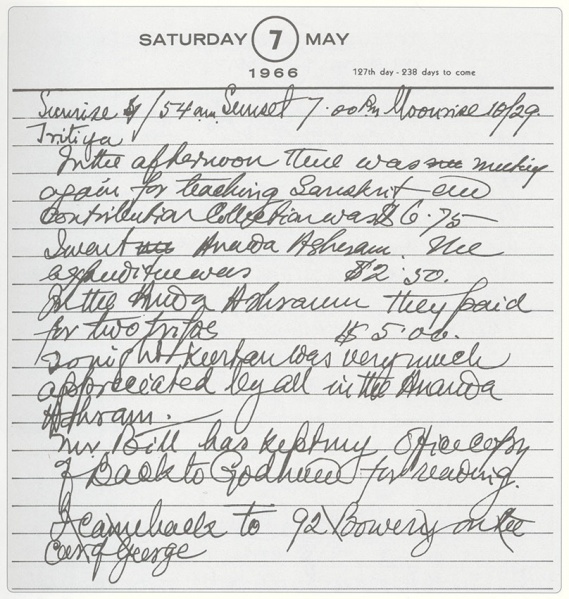 SATURDAY 7 MAY
1966 127th day - 238 days to come
Sunrise 4/54 am Sunset 7.00 Pm Moonrise 10/29.
Tritiya
In the afternoon there was meeting
again for teaching Sanskrit and
Contribution Collection was $6.75
I went Ananda Ashram. The
expenditure was $2.50.
In the Anda Ashram they paid
for two trips $5.00.
Tonight Kirtan was very much
appreciated by all in the Ananda
Ashram.
Mr. Bill has kept my office copy
of Back to Godhead for reading.
I came back to 92 Bowery on the
Car of George